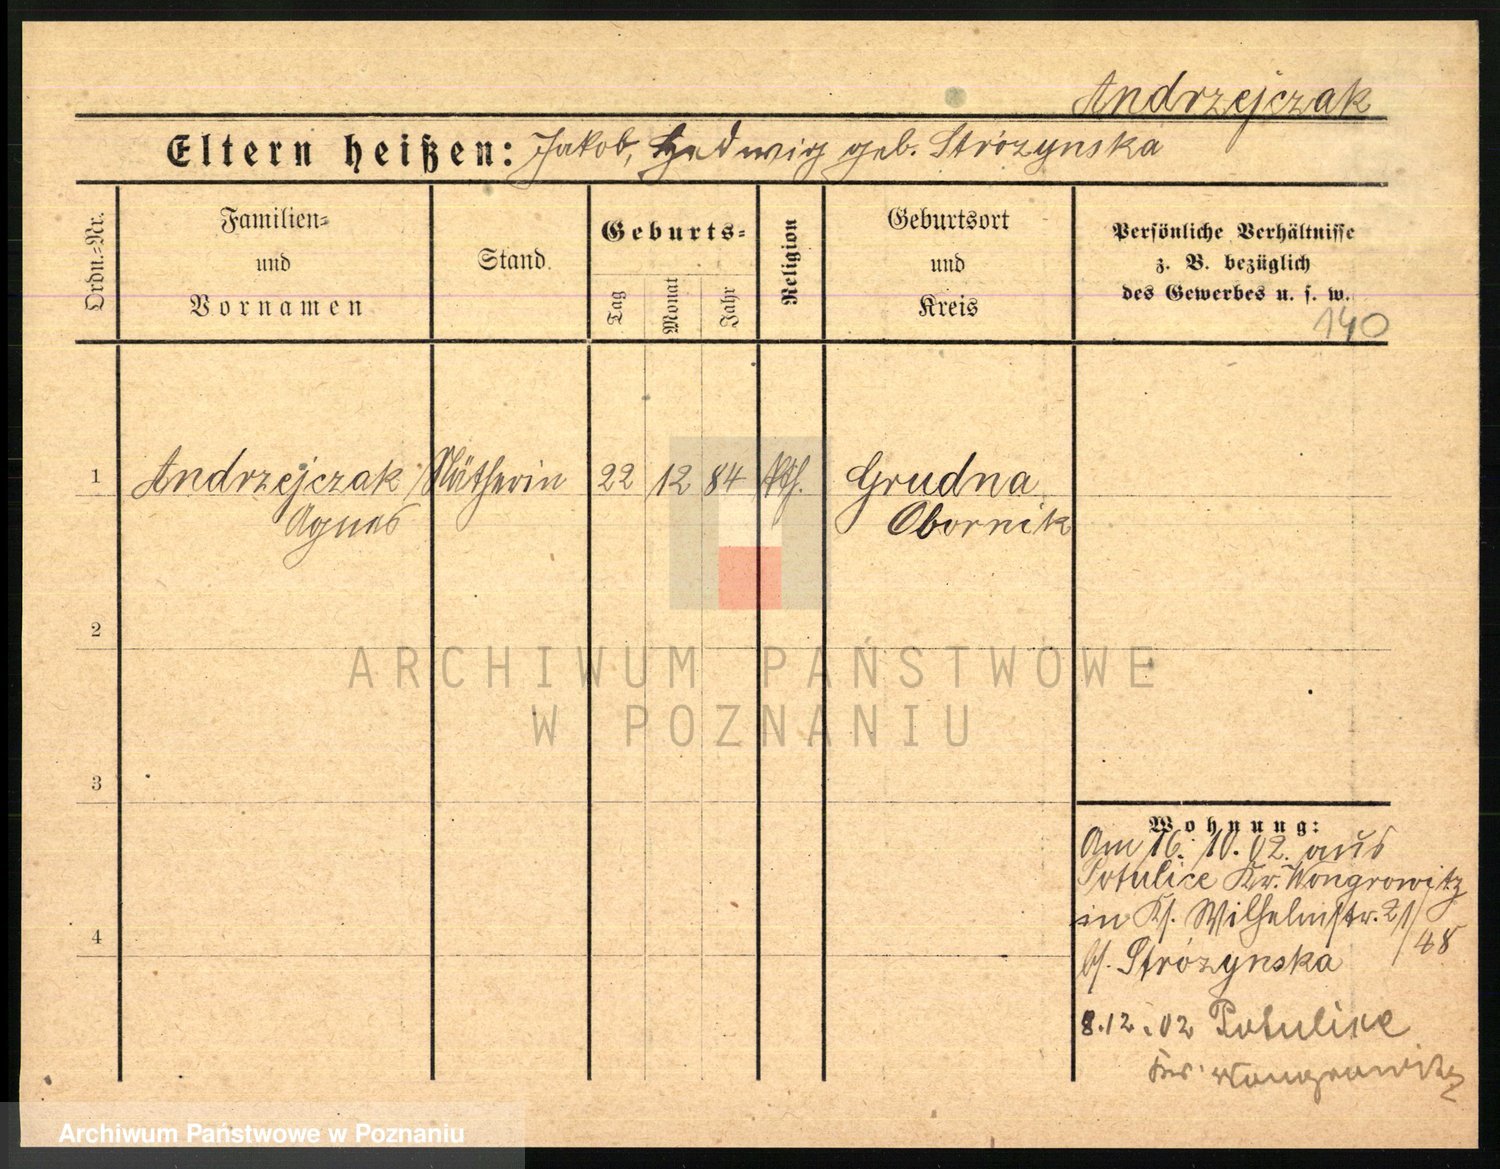 Andrzejczak
Eltern heißen: Jakob, Hedwig geb. Strózynska
Ordn.-Nr.
Familien-
und
Vornamen
Stand.
Geburts-
Tag
Monat
Jahr
Religion
Geburtsort
und
Kreis
Persönliche Verhältnisse
z. B. bezüglich
des Gewerbes u. s. w.
140
1 Andrzejczak Nätherin 22 12 84 kth. Grudna
Agnes Obornik
2
3
4
ARCHIWUM PAŃSTWOWE
W POZNANIU
Wohnung:
Am 16. 10. 02. aus
Potulice Kr. Wongrowitz
in Ks. Wilhelmstr. 21/48
bs. Strózynska
8.12.02 Potulice
Kr. Wongrowitz
Archiwum Państwowe w Poznaniu